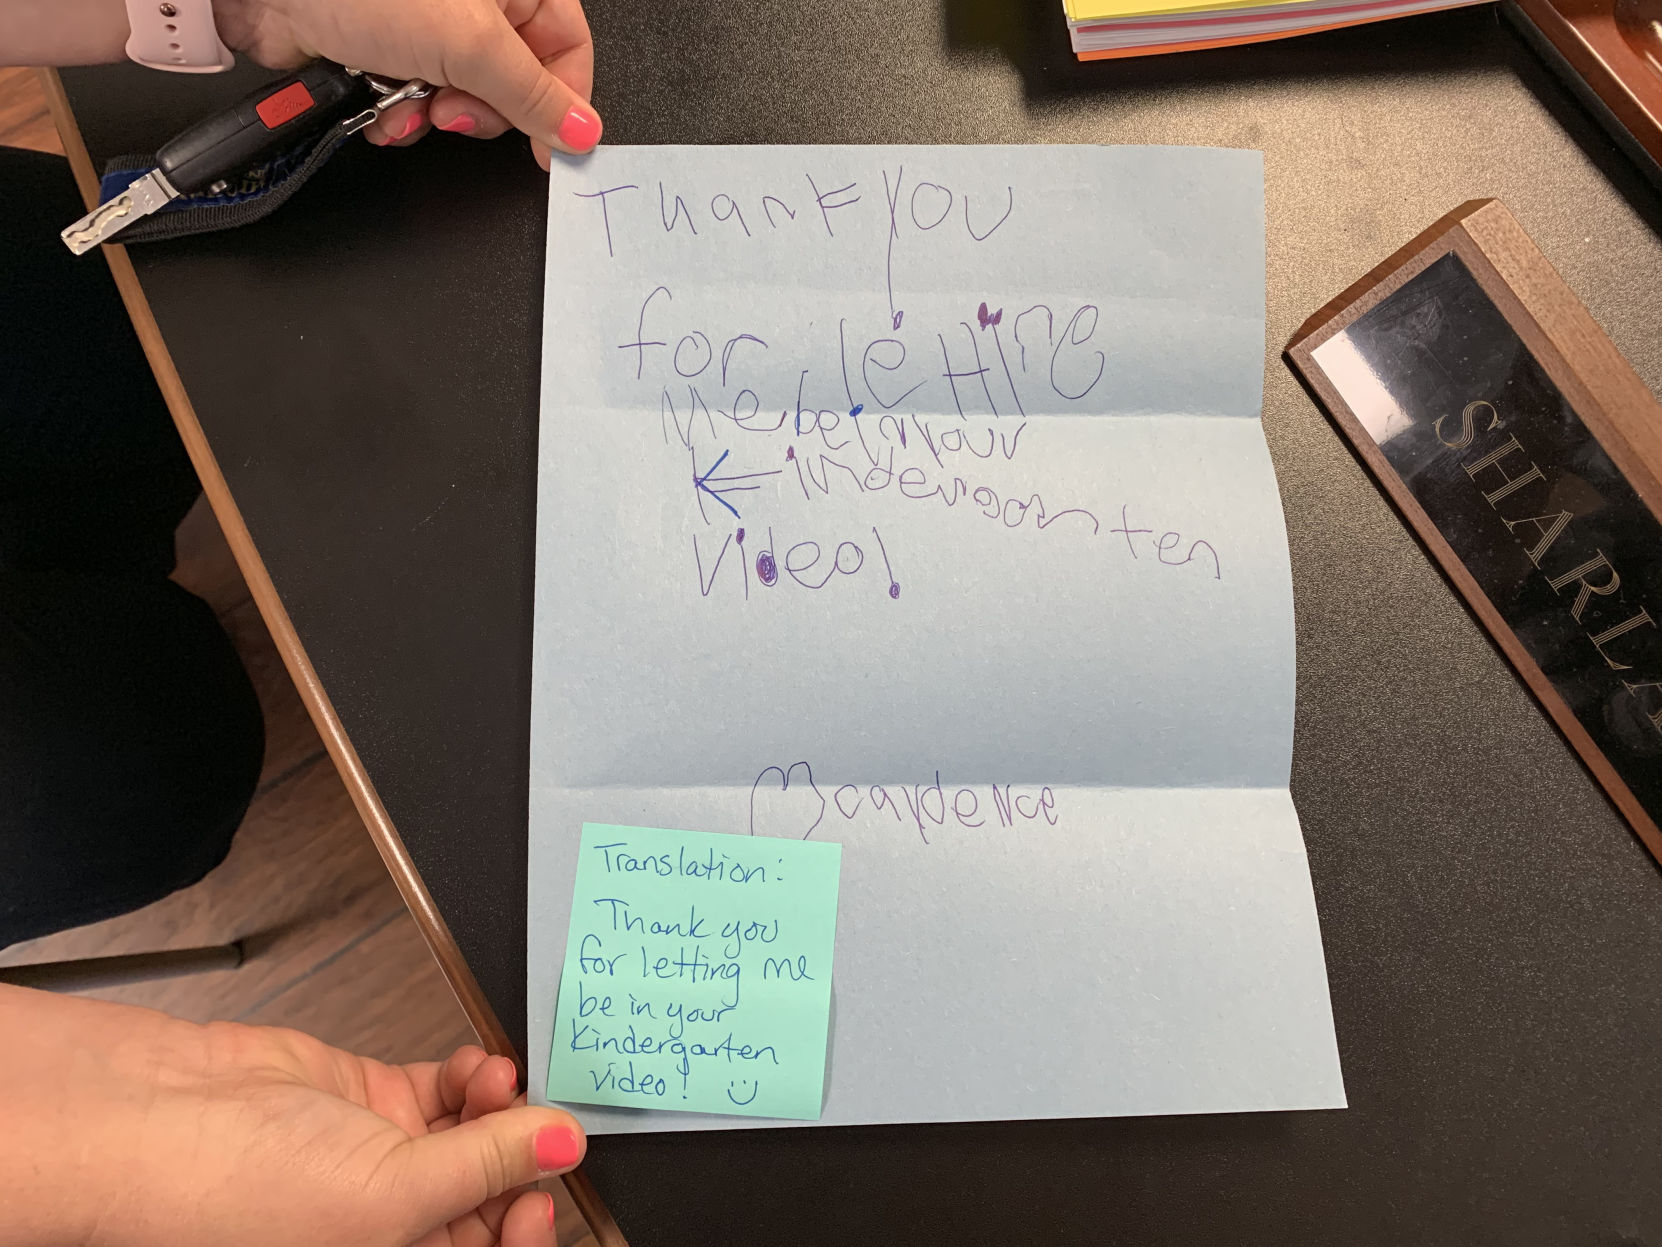 Thank you
for letting
me be in your
Kindergarten
video!
caydence
Translation:
Thank you
for letting me
be in your
Kindergarten
video! :)
SHARLA